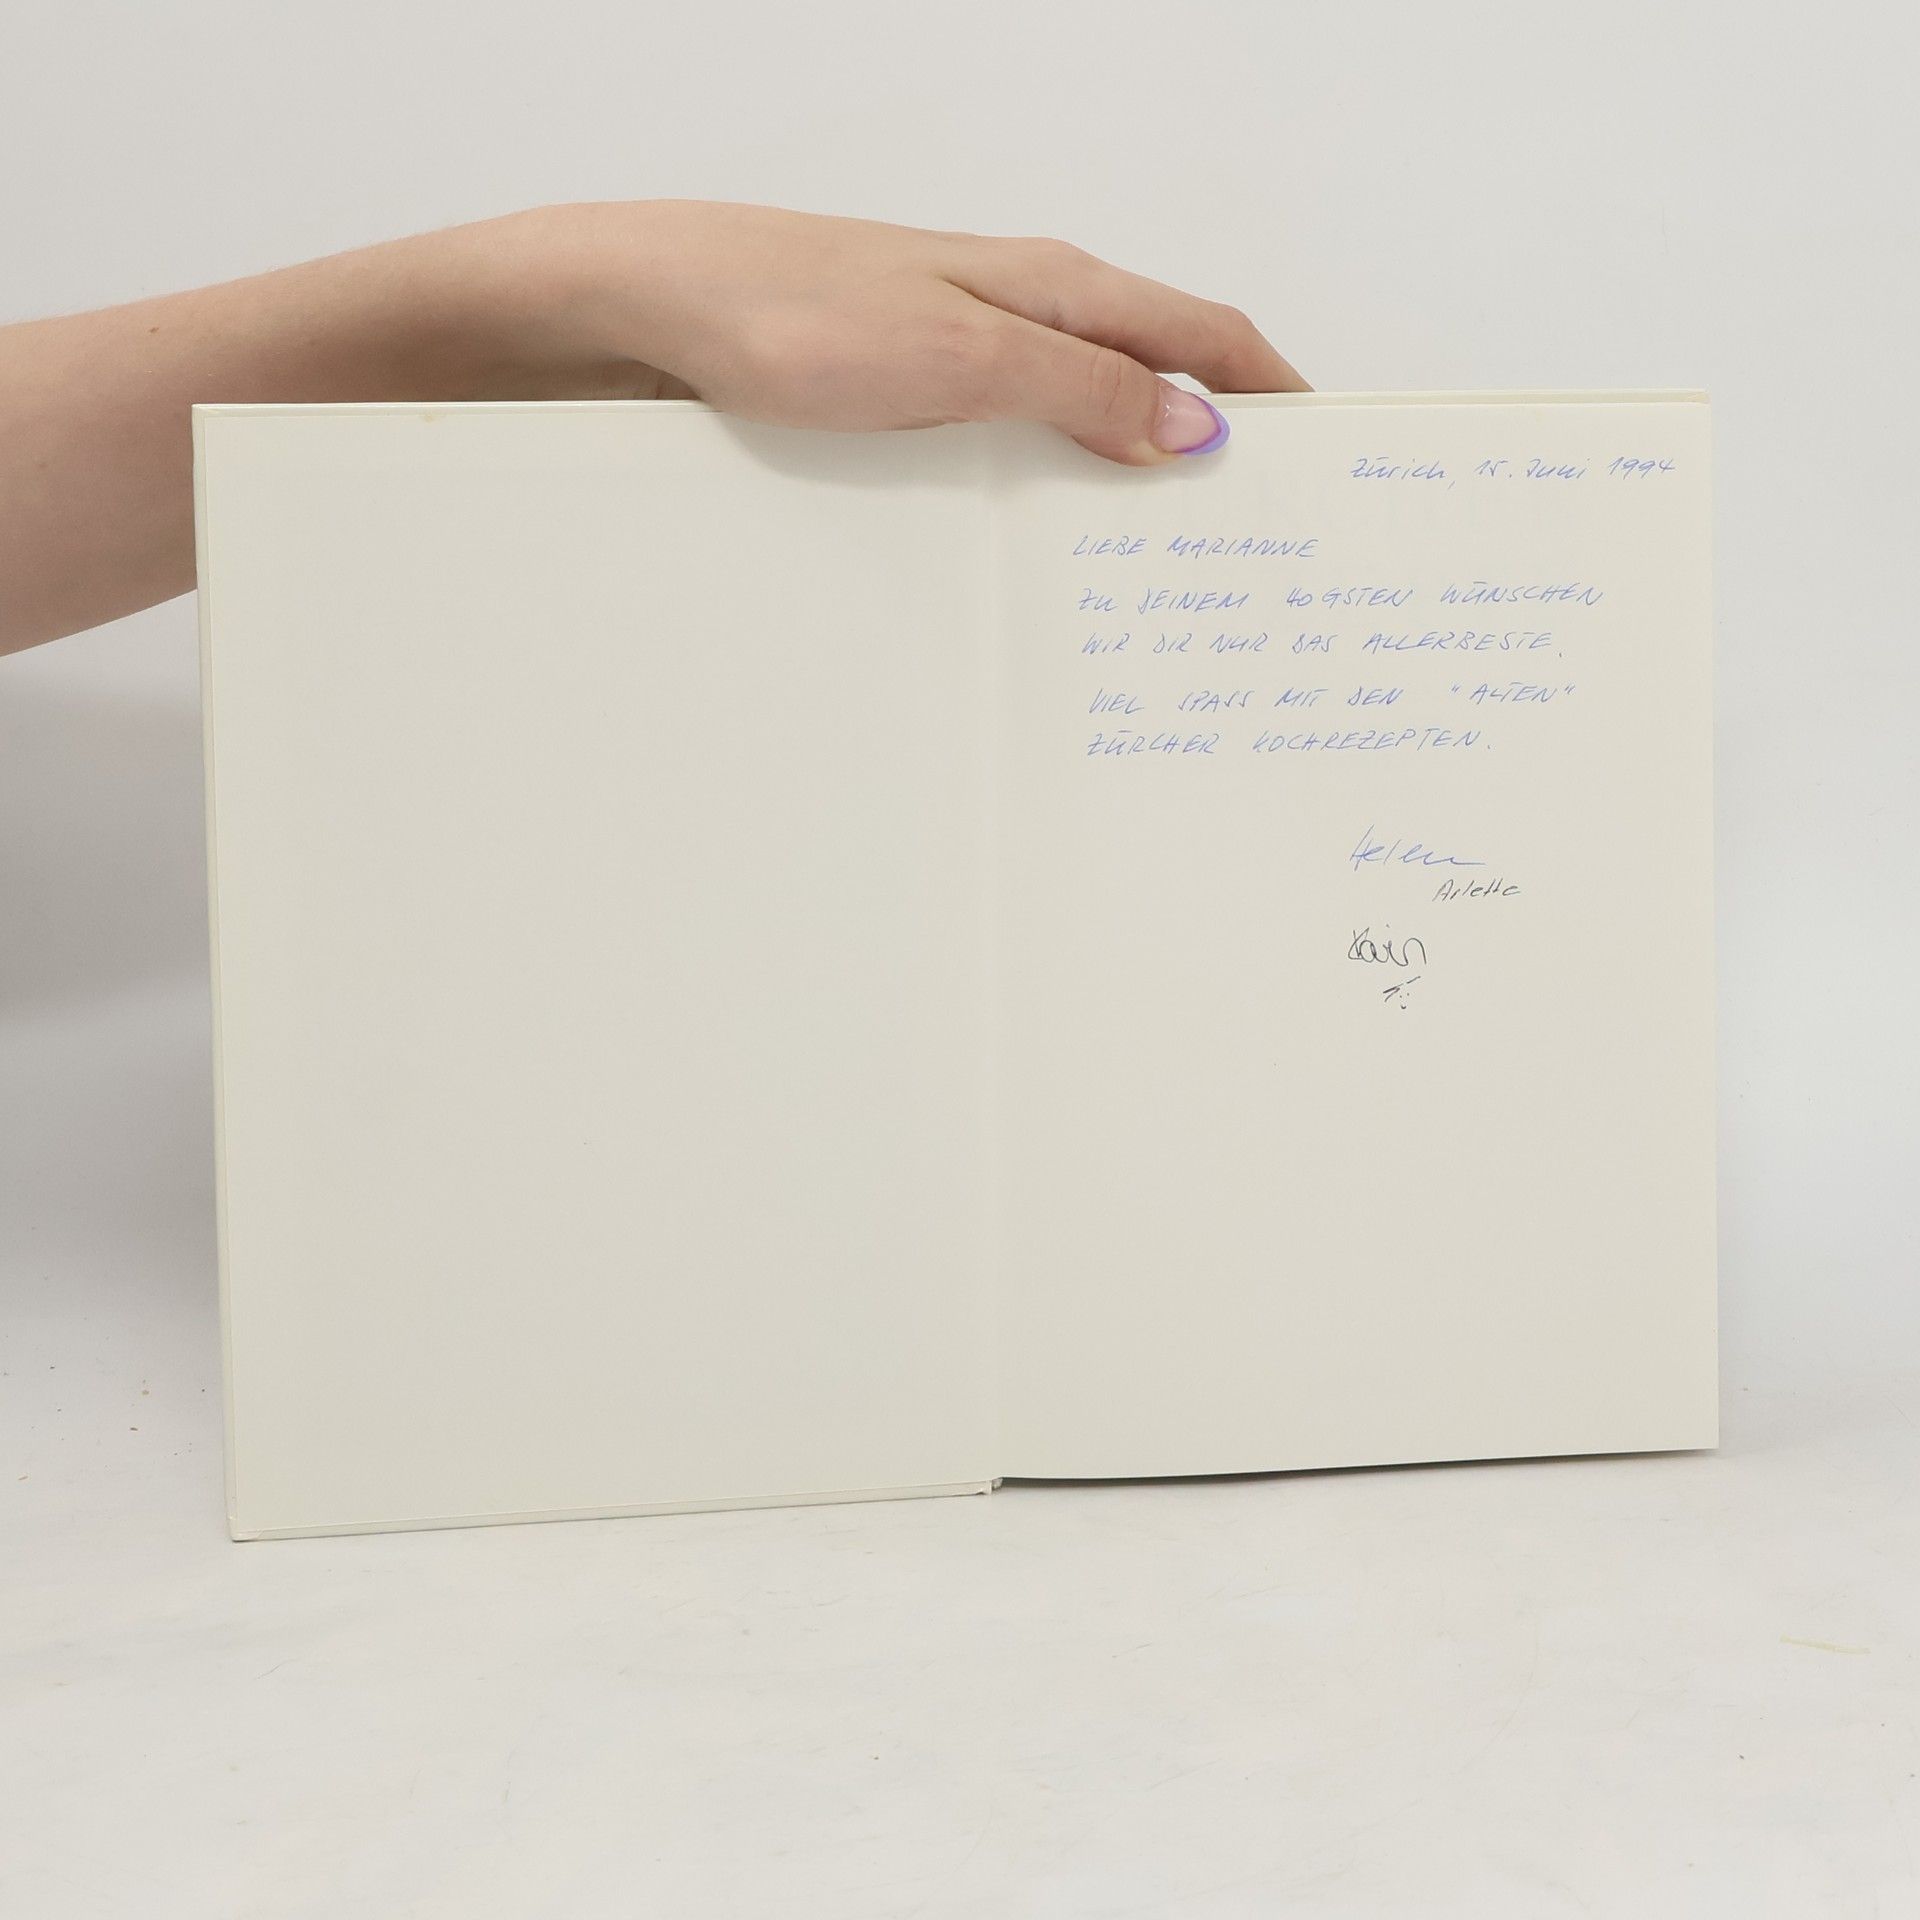 Zürich, 15. Juni 1994
LIEBE MARIANNE
ZU DEINEM 40GSTEN WÜNSCHEN
WIR DIR NUR DAS ALLERBESTE.
VIEL SPASS MIT DEN "ALTEN"
ZÜRCHER KOCHREZEPTEN.
Helen
Arlette